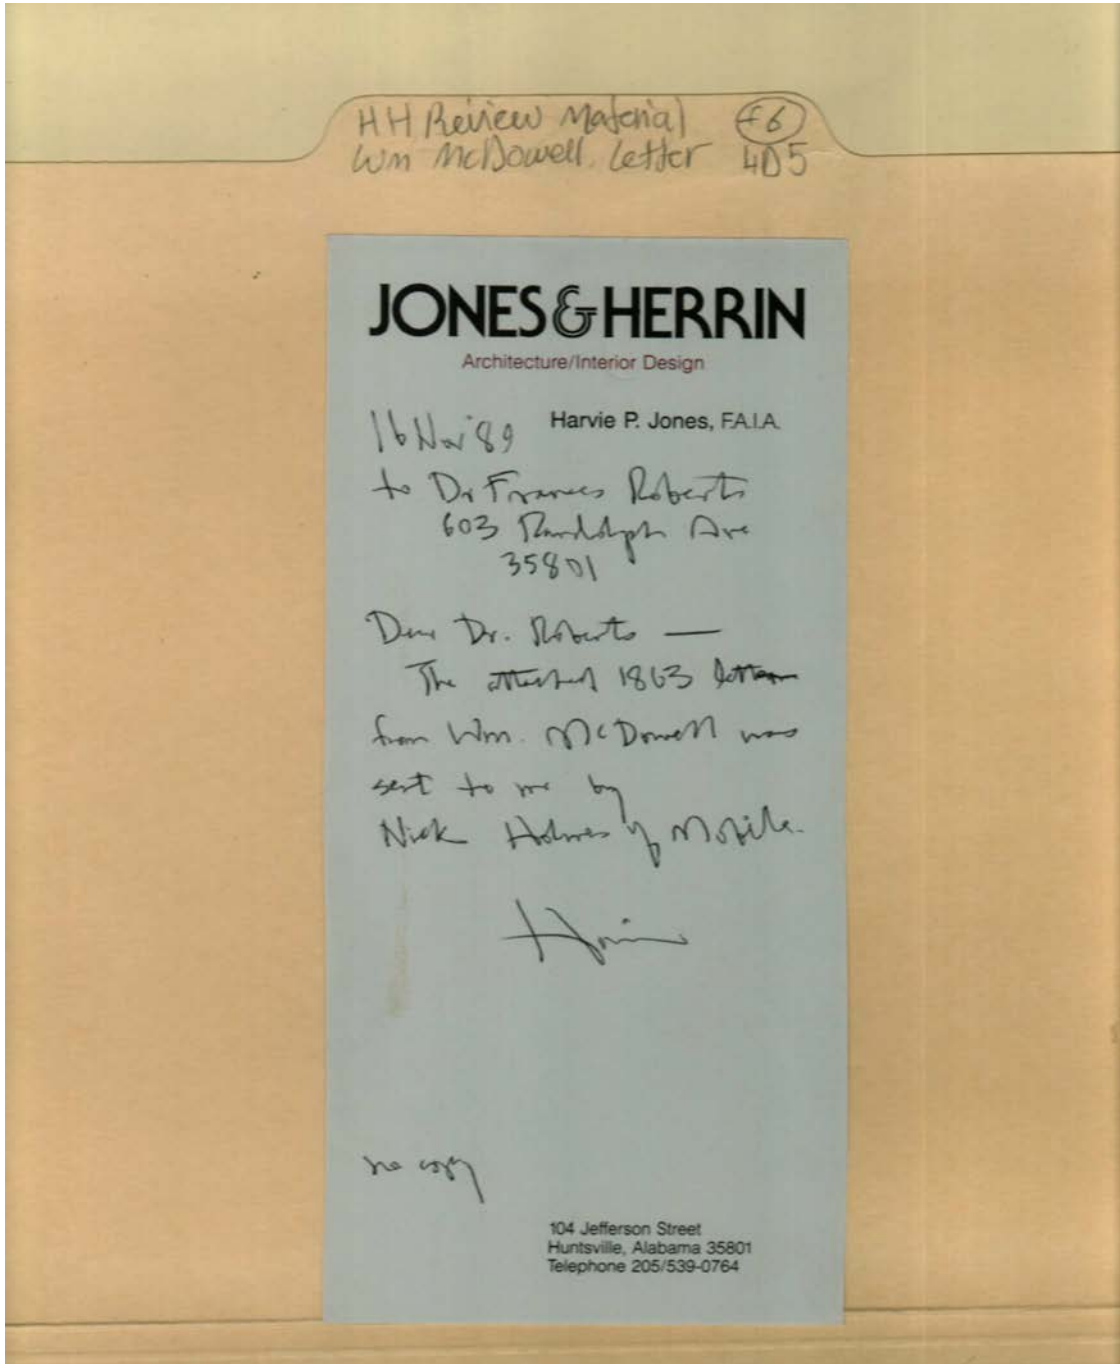 HH Review Material f6
Wm McDowell Letter 4D5
JONES & HERRIN
Architecture/Interior Design
Harvie P. Jones, F.A.I.A.
16 Nov '89
to Dr Frances Roberts
603 Randolph Ave
35801
Dear Dr. Roberts —
The attached 1863 letter
from Wm. McDowell was
sent to me by
Nick Holmes of Mobile.
Harvie
no copy
104 Jefferson Street
Huntsville, Alabama 35801
Telephone 205/539-0764